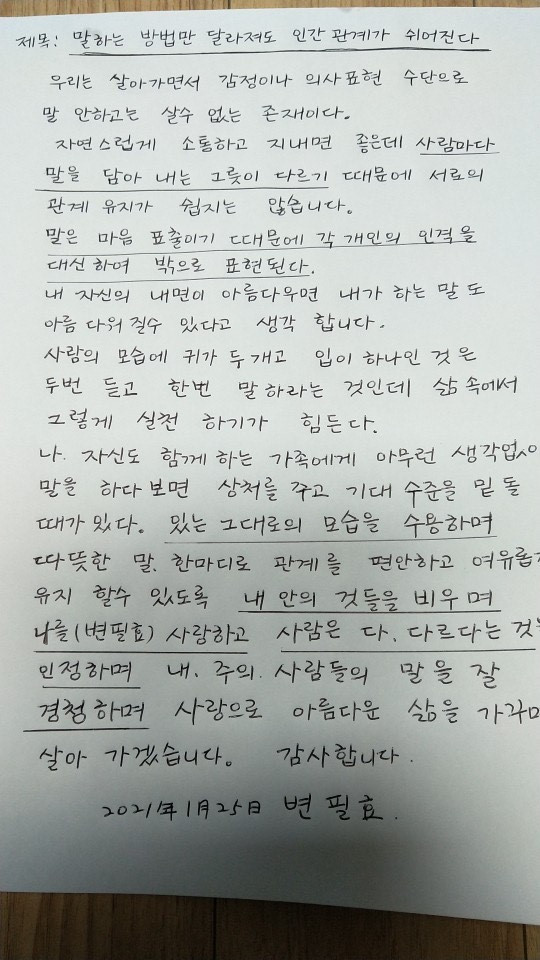 제목: 말하는 방법만 달라져도 인간관계가 쉬어진다
우리는 살아가면서 감정이나 의사표현 수단으로
말 안하고는 살수 없는 존재이다.
자연스럽게 소통하고 지내면 좋은데 사람마다
말을 담아 내는 그릇이 다르기 때문에 서로의
관계 유지가 쉽지는 않습니다.
말은 마음 표출이기 때문에 각 개인의 인격을
대신하여 밖으로 표현된다.
내 자신의 내면이 아름다우면 내가 하는 말도
아름 다워 질수 있다고 생각 합니다.
사람의 모습에 귀가 두개고 입이 하나인 것은
두번 듣고 한번 말하라는 것인데 삶 속에서
그렇게 실천 하기가 힘든다.
나. 자신도 함께 하는 가족에게 아무런 생각없이
말을 하다보면 상처를 주고 기대 수준을 밑 돌
때가 있다. 있는 그대로의 모습을 수용하며
따뜻한 말. 한마디로 관계를 편안하고 여유롭게
유지 할수 있도록 내 안의 것들을 비우며
나를(변필효) 사랑하고 사람은 다. 다르다는 것을
인정하며 내. 주의. 사람들의 말을 잘
경청하며 사랑으로 아름다운 삶을 가꾸며
살아 가겠습니다. 감사합니다.
2021年 1月 25日 변 필 효.